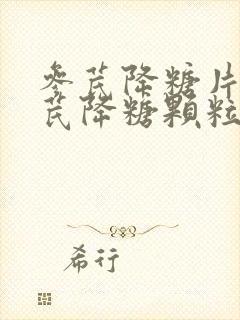 参芪降糖片
芪降糖颗粒
希行